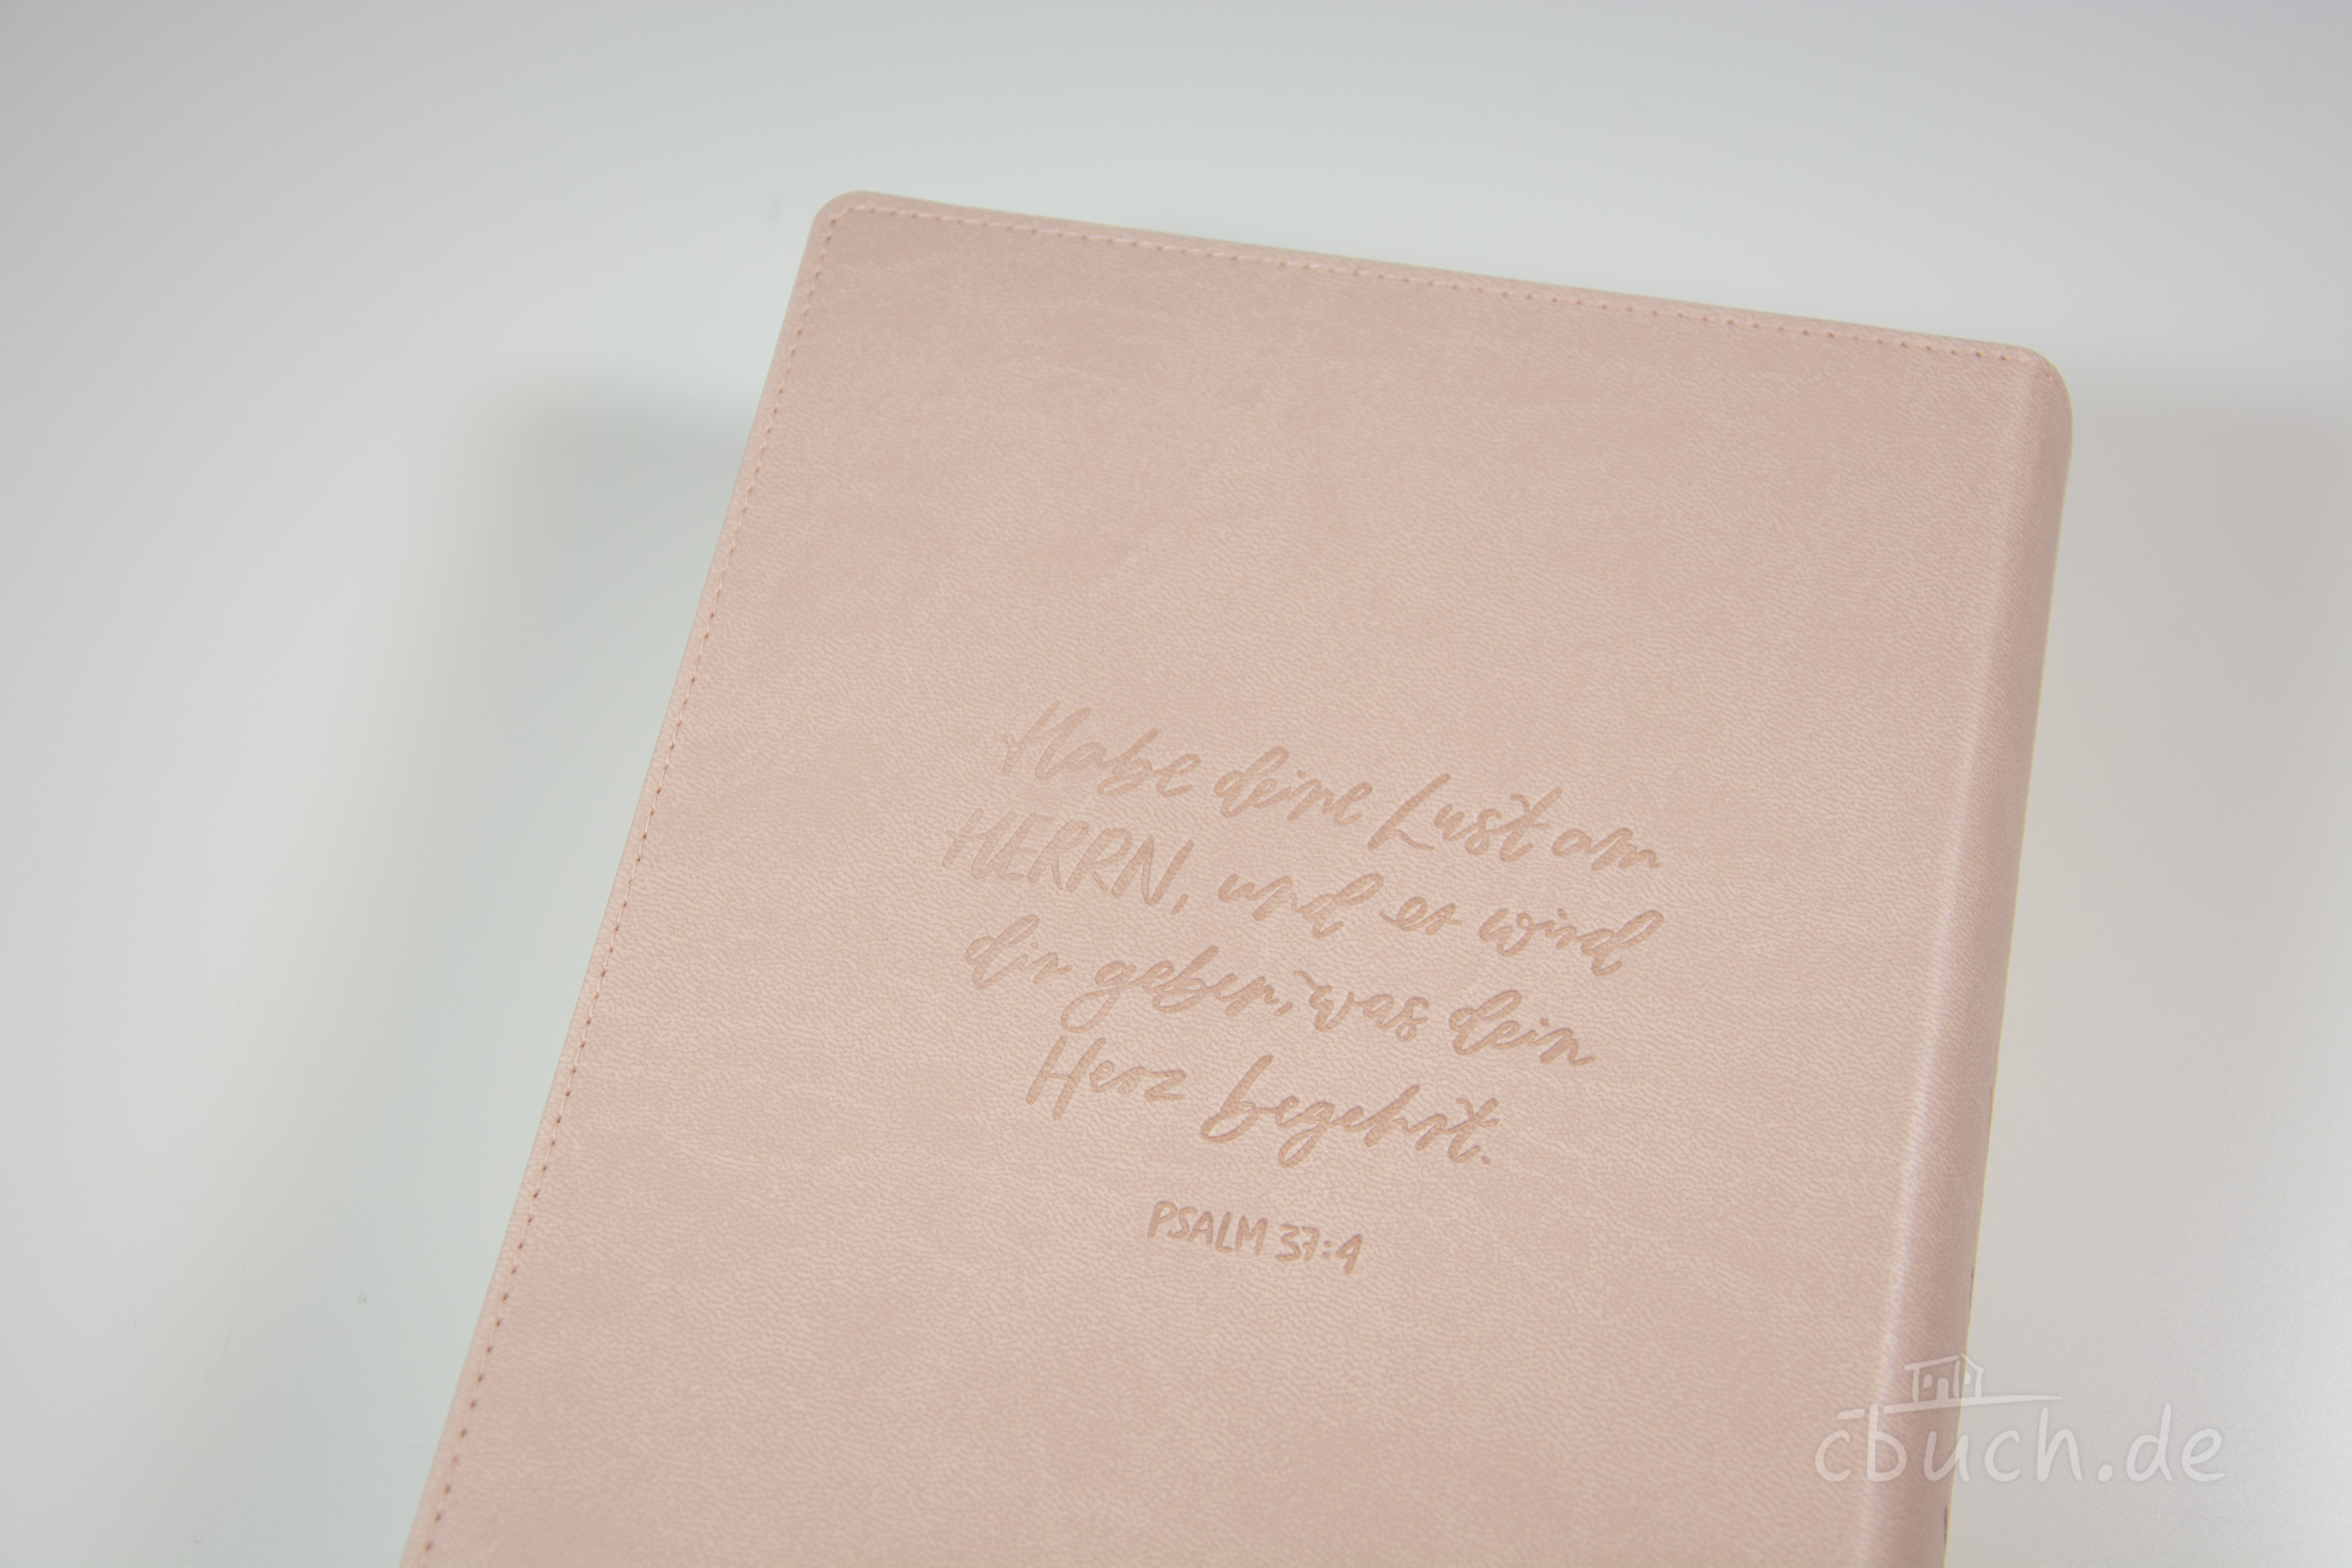 Habe deine Lust am
HERRN, und er wird
dir geben, was dein
Herz begehrt.
PSALM 37:4
cbuch.de